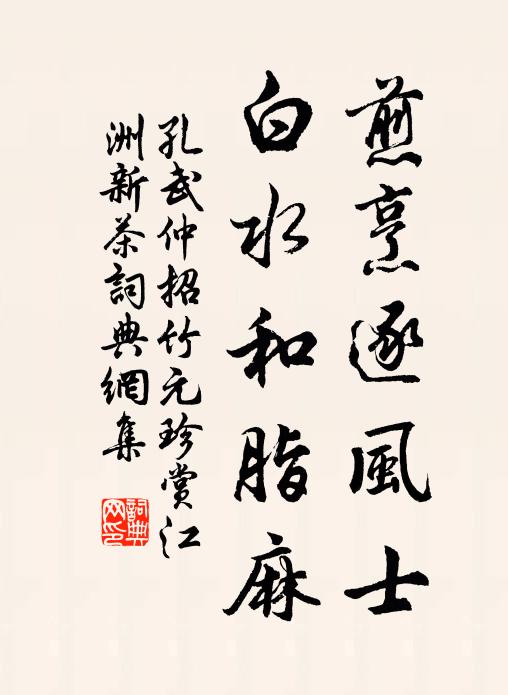 煎烹逐風士
白水和脂麻
孔武仲招竹元珍賞江
洲新茶詞典網集
詞典
网印